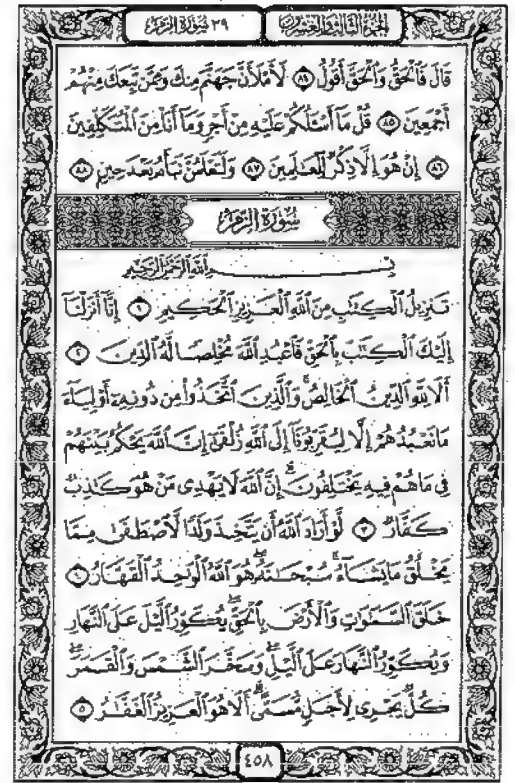 الجزء الثالث والعشرون ٣٩ سورة الزمر
قَالَ فَالْحَقُّ وَالْحَقَّ أَقُولُ ٨٤ لَأَمْلَأَنَّ جَهَنَّمَ مِنكَ وَمِمَّن تَبِعَكَ مِنْهُمْ
أَجْمَعِينَ ٨٥ قُلْ مَا أَسْـَٔلُكُمْ عَلَيْهِ مِنْ أَجْرٍ وَمَا أَنَا۠ مِنَ الْمُتَكَلِّفِينَ
٨٦ إِنْ هُوَ إِلَّا ذِكْرٌ لِّلْعَالَمِينَ ٨٧ وَلَتَعْلَمُنَّ نَبَأَهُ بَعْدَ حِينٍ ٨٨
سُورَةُ الزُّمَرِ
بِسْمِ اللَّهِ الرَّحْمَٰنِ الرَّحِيمِ
تَنزِيلُ الْكِتَٰبِ مِنَ اللَّهِ الْعَزِيزِ الْحَكِيمِ ١ إِنَّا أَنزَلْنَا
إِلَيْكَ الْكِتَٰبَ بِالْحَقِّ فَاعْبُدِ اللَّهَ مُخْلِصًا لَّهُ الدِّينَ ٢
أَلَا لِلَّهِ الدِّينُ الْخَالِصُ وَالَّذِينَ اتَّخَذُوا مِن دُونِهِ أَوْلِيَاءَ
مَا نَعْبُدُهُمْ إِلَّا لِيُقَرِّبُونَا إِلَى اللَّهِ زُلْفَىٰ إِنَّ اللَّهَ يَحْكُمُ بَيْنَهُمْ
فِي مَا هُمْ فِيهِ يَخْتَلِفُونَ إِنَّ اللَّهَ لَا يَهْدِي مَنْ هُوَ كَٰذِبٌ
كَفَّارٌ ٣ لَّوْ أَرَادَ اللَّهُ أَن يَتَّخِذَ وَلَدًا لَّاصْطَفَىٰ مِمَّا
يَخْلُقُ مَا يَشَاءُ سُبْحَٰنَهُ هُوَ اللَّهُ الْوَٰحِدُ الْقَهَّارُ ٤
خَلَقَ السَّمَٰوَٰتِ وَالْأَرْضَ بِالْحَقِّ يُكَوِّرُ الَّيْلَ عَلَى النَّهَارِ
وَيُكَوِّرُ النَّهَارَ عَلَى الَّيْلِ وَسَخَّرَ الشَّمْسَ وَالْقَمَرَ
كُلٌّ يَجْرِي لِأَجَلٍ مُّسَمًّى أَلَا هُوَ الْعَزِيزُ الْغَفَّٰرُ ٥
٤٥٨